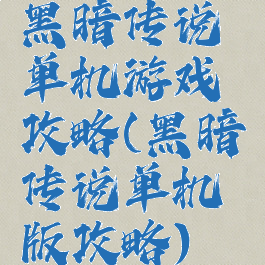 黑暗传说
单机游戏
攻略(黑暗
传说单机
版攻略)